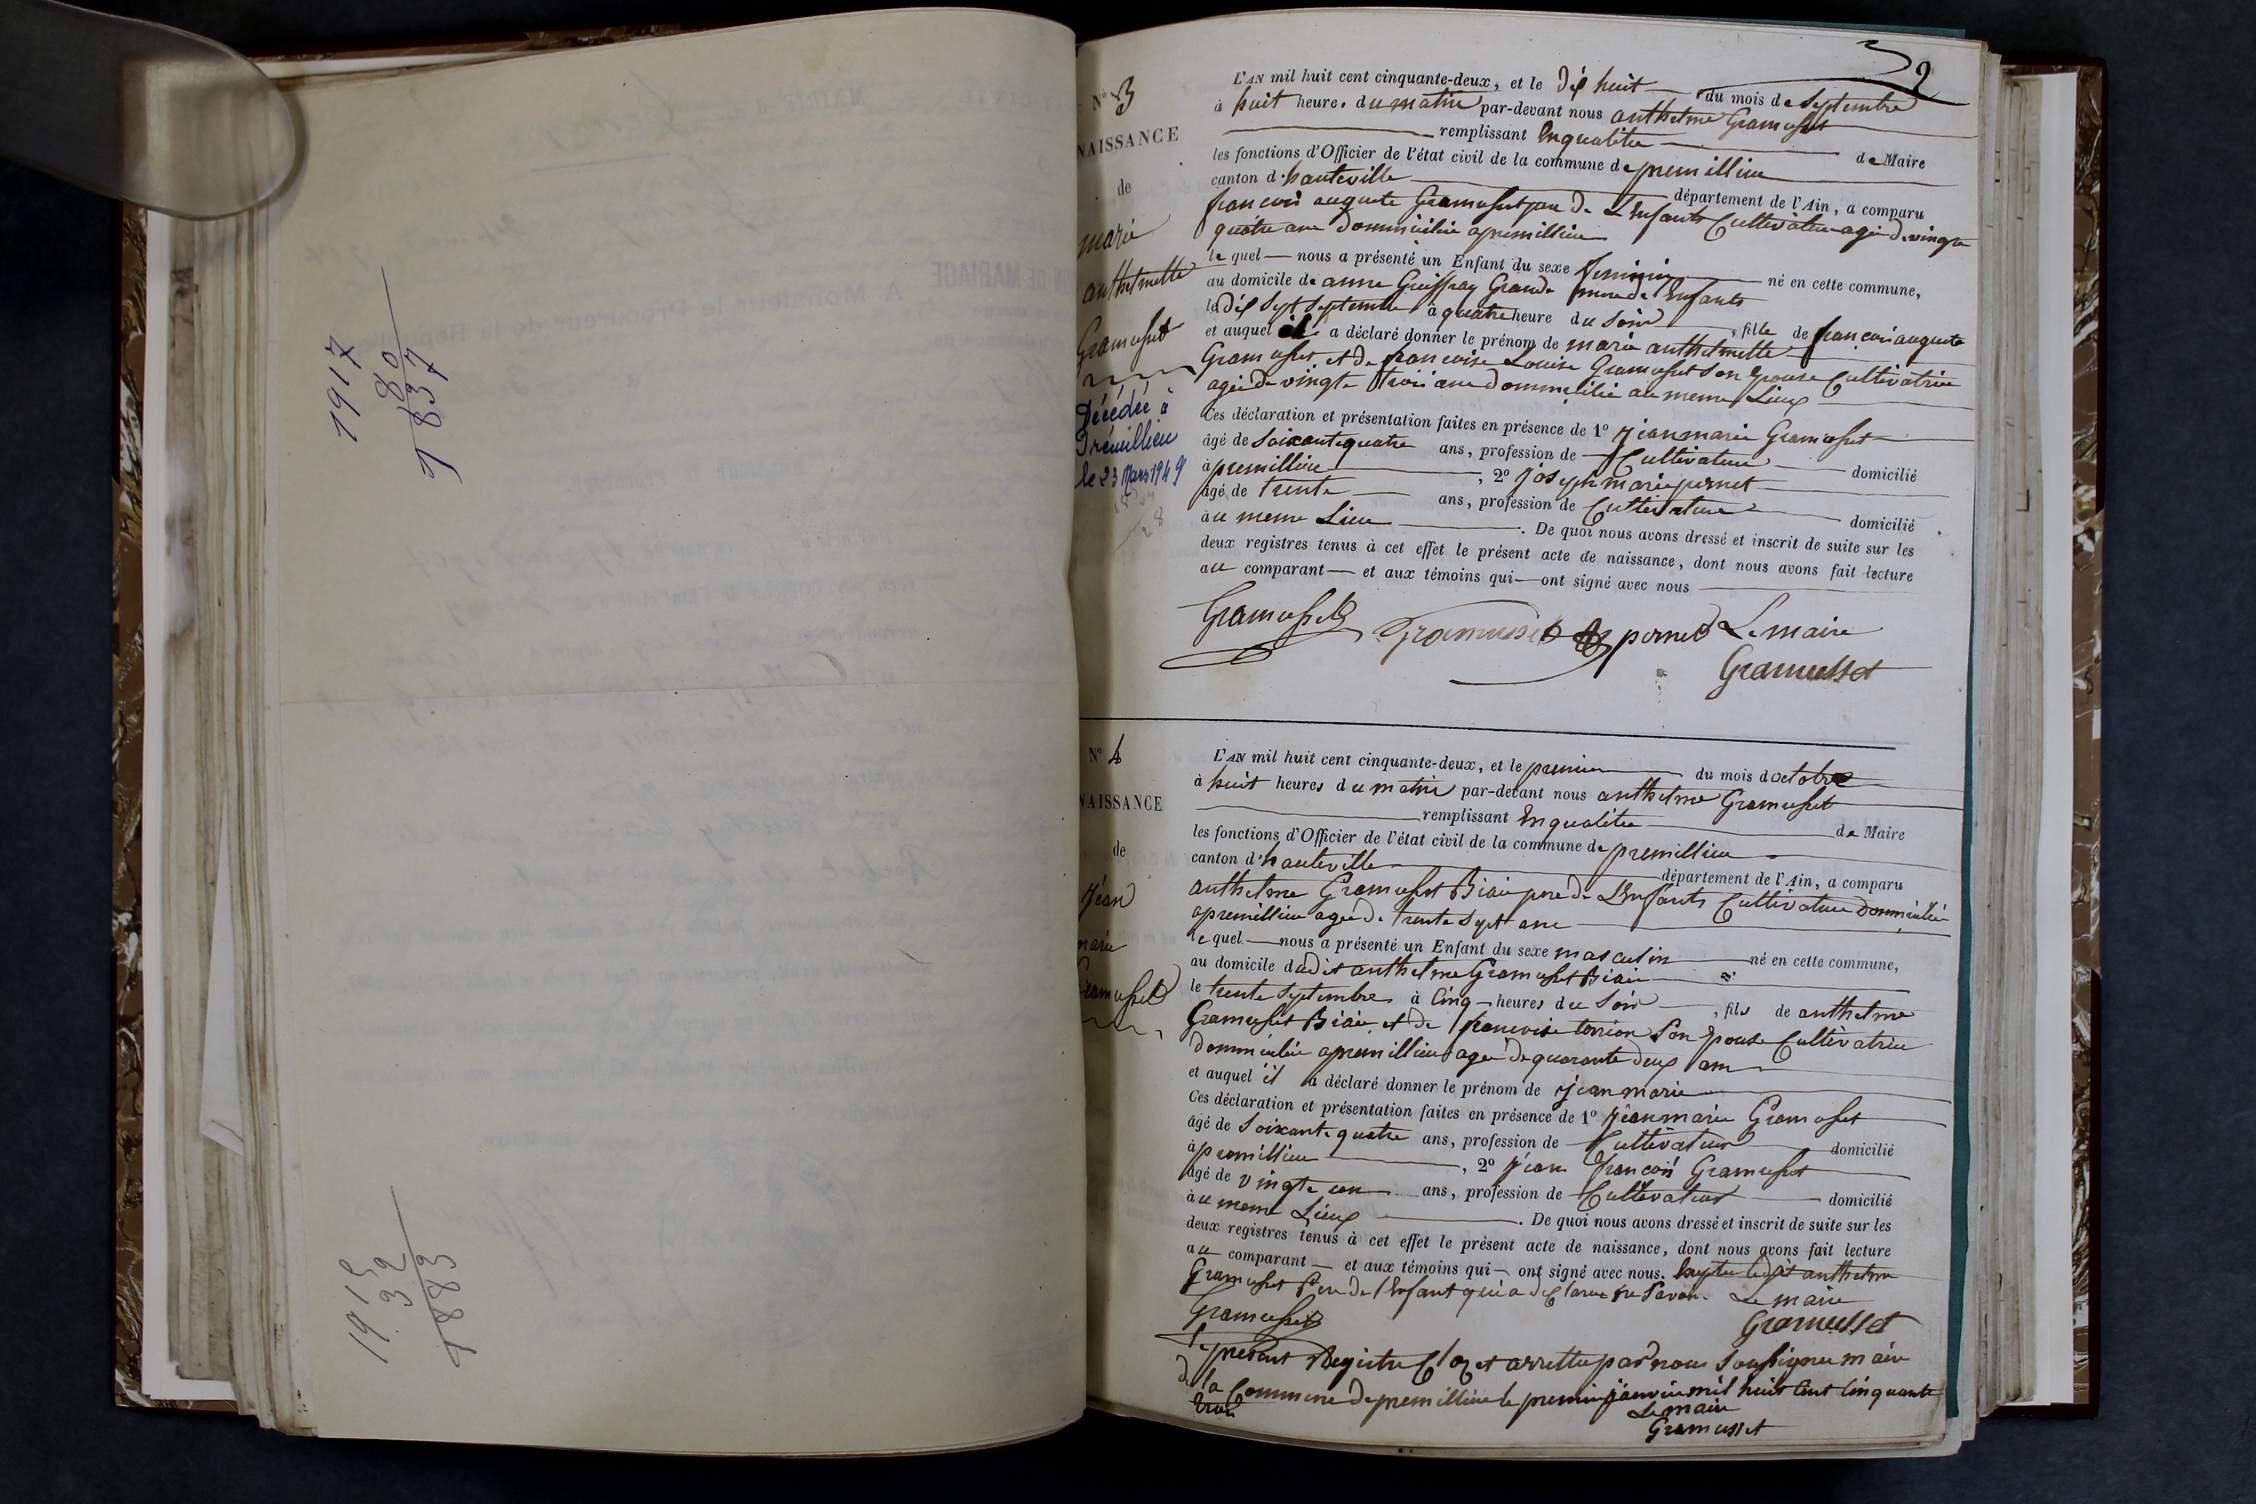 1917
80
1837
1915
32
1883
2
N° 3
NAISSANCE
de
marie
anthelmette
Gramusset
Décédée à
Prémillieu
le 23 Mars 1949
L'AN mil huit cent cinquante-deux, et le dix huit du mois de Septembre
à huit heures du matin par-devant nous anthelme Gramusset
remplissant Enqualitée de Maire
les fonctions d'Officier de l'état civil de la commune de premillieu
canton d'hauteville département de l'Ain, a comparu
francois auguste Gramusset pere de L'Enfants Cultivateur agé de vingte
quatre ans dommicilié a premillieu
lequel nous a présenté un Enfant du sexe feminin né en cette commune,
au domicile de anne Grand mere de Enfants
le dix Sept Septembre à quatre heure du Soir, fille de francois auguste
et auquel il a déclaré donner le prénom de marie anthelmette
Gramusset et de francoise Louise Gramusset son Epouse Cultivatrice
agée de vingte trois ans dommicilié au meme Lieux
Ces déclaration et présentation faites en présence de 1° Jean marie Gramusset
âgé de Soixante quatre ans, profession de Cultivateur domicilié
à premillieu, 2° Joseph marie pernet
âgé de trente ans, profession de Cultivateur domicilié
au meme Lieu. De quoi nous avons dressé et inscrit de suite sur les
deux registres tenus à cet effet le présent acte de naissance, dont nous avons fait lecture
au comparant et aux témoins qui ont signé avec nous
Gramusset Gramusset pernet Le maire
Gramusset
N° 4
NAISSANCE
de
Jéan
marie
Gramusset
L'AN mil huit cent cinquante-deux, et le premier du mois d'octobre
à huit heures du matin par-devant nous anthelme Gramusset
remplissant Enqualitée de Maire
les fonctions d'Officier de l'état civil de la commune de premillieu
canton d'hauteville département de l'Ain, a comparu
anthelme Gramusset Biaie pere de L'Enfants Cultivateur dommicilié
a premillieu agé de trente Sept ans
lequel nous a présenté un Enfant du sexe masculin né en cette commune,
au domicile dudit anthelme Gramusset Biaie
le trente Septembre à Cinq heures du Soir, fils de anthelme
Gramusset Biaie et de francoise tonion Son Epouse Cultivatrice
dommiciliée a premillieu agée de quarante deux ans
et auquel il a déclaré donner le prénom de Jéan marie
Ces déclaration et présentation faites en présence de 1° Jéan marie Gramusset
âgé de Soixante quatre ans, profession de Cultivateur domicilié
à premillieu, 2° Jéan francois Gramusset
âgé de vingte un ans, profession de Cultivateur domicilié
au meme Lieux. De quoi nous avons dressé et inscrit de suite sur les
deux registres tenus à cet effet le présent acte de naissance, dont nous avons fait lecture
au comparant et aux témoins qui ont signé avec nous. Exepté Ledit anthelme
Gramusset Pere de l'Enfant qui a declaree ne Savoir Le maire
Gramusset Gramusset
le présent Registre Cloz et arrettée par nous Soussignée maire
de la Commune de premillieu le premier janvier mil huit Cent Cinquante
trois Le maire
Gramusset